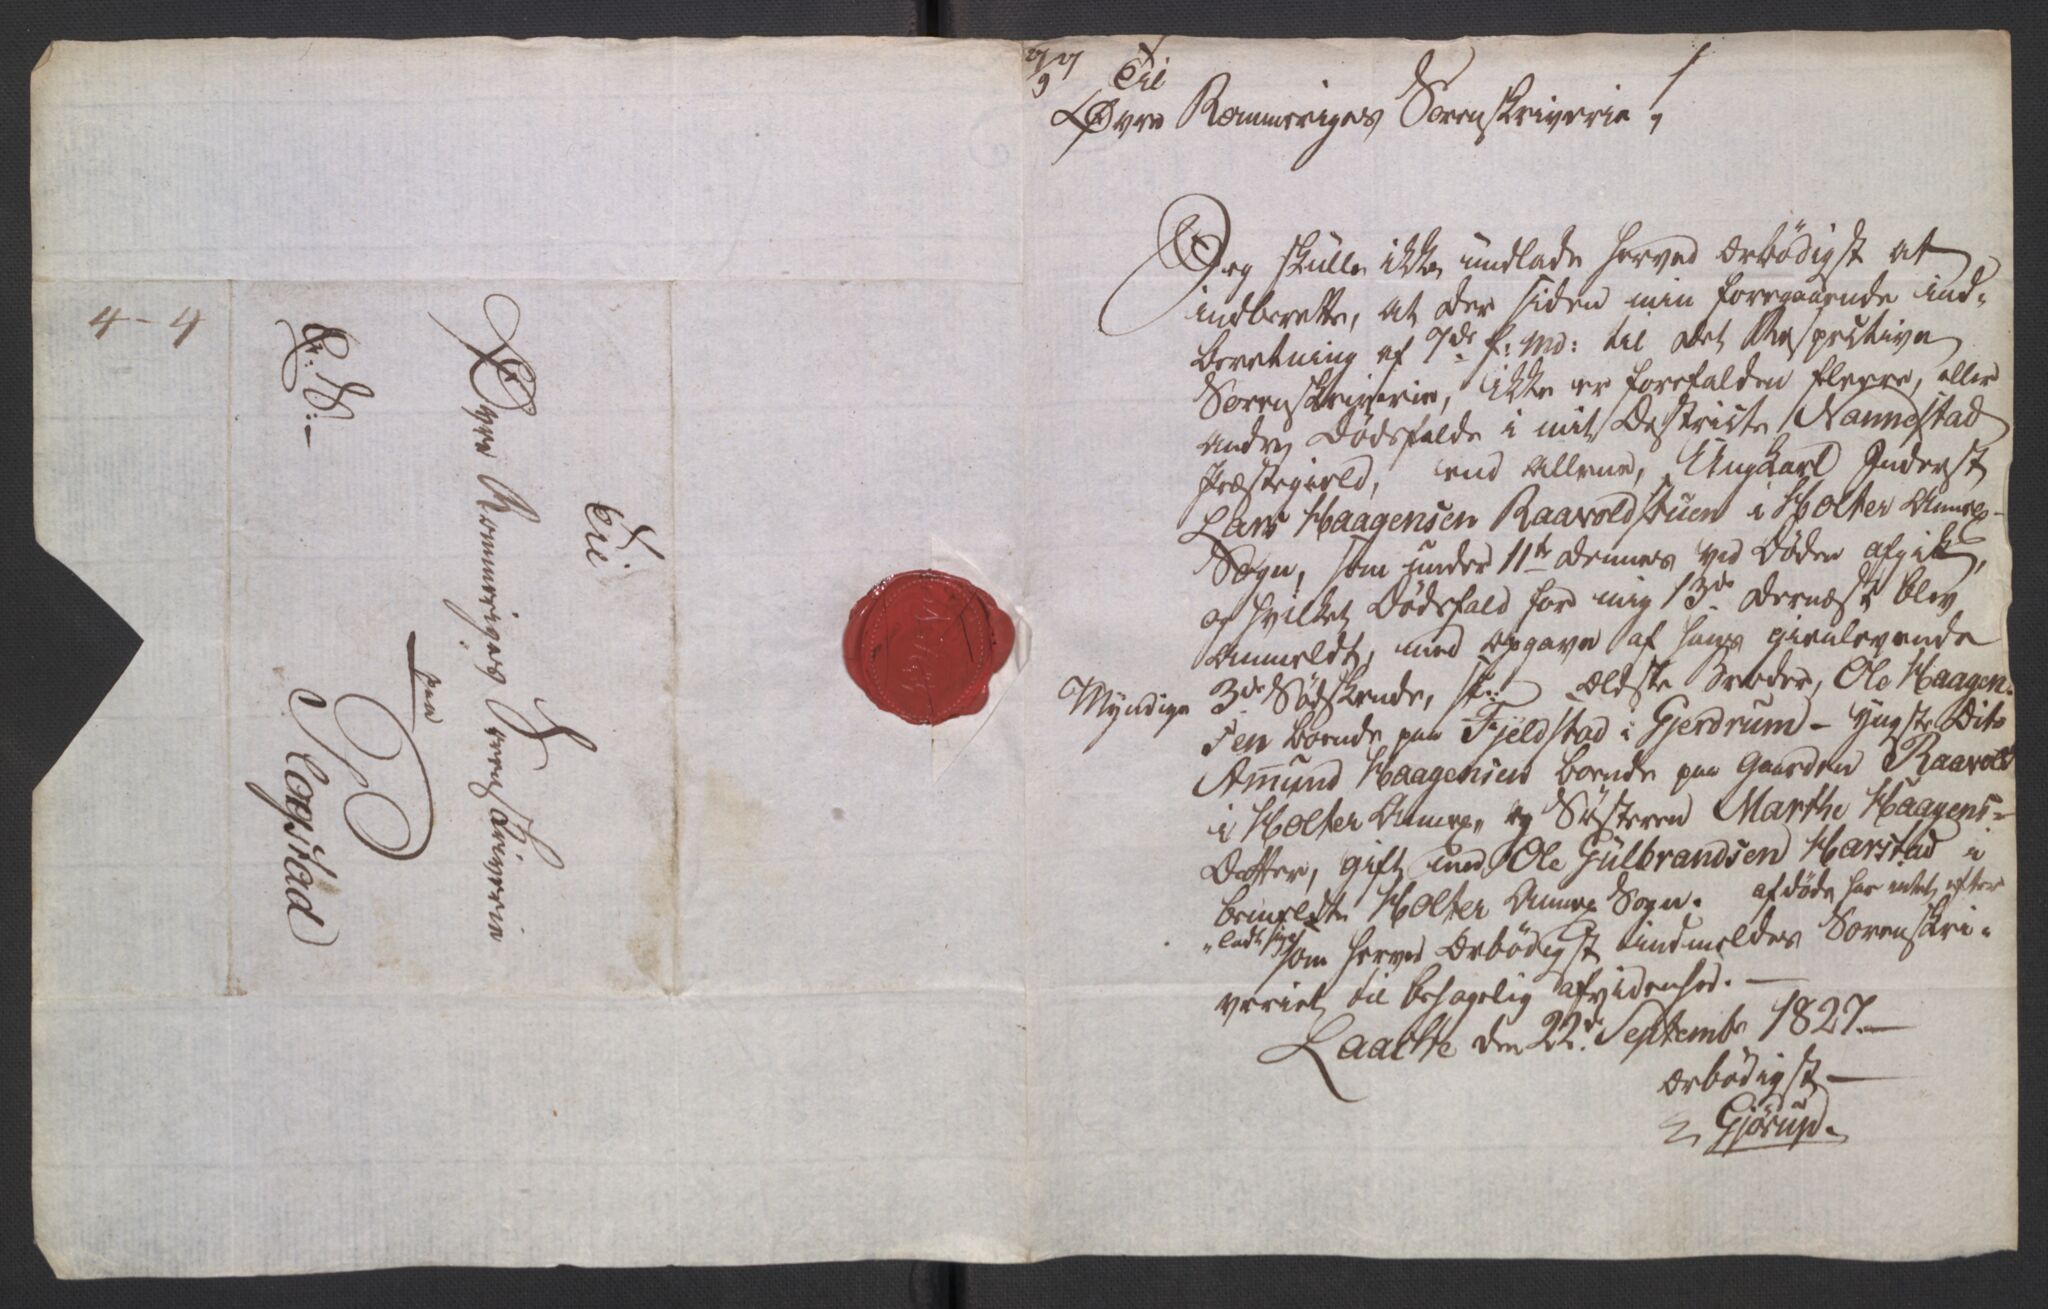 4-4
E. S:
Til
Øvre Rommeriges Sorenskriverie
paa
Cogstad
27/9
Til
Øvre Rommeriges Sorenskriverie
Jeg skulle ikke undlade herved ærbødigst at
indberette, at der siden min foregaaende ind-
beretning af 7de f: Md: til det Respective
Sorenskriverie, ikke er forefalden fleere, eller
andre Dødsfalde i mit Destricte Nannestad
Præstegield, end allene, Ungkarl Inderst
Lars Haagensen Raavoldstuen i Holter Annex-
Sogn, som under 11te dennes ved Døden afgik,
og hvilket Dødsfald for mig 13de dernæst blev
anmeldt, med Opgave af hans gienlevende
Myndige 3de Sødskende, sk: Ældste Broder, Ole Haagen-
sen boende paa Fjeldstad i Gjerdrum - yngste Dito
Amund Haagensen boende paa Gaarden Raavold
i Holter Annex, og Søsteren Marthe Haagens-
Datter, gift med Ole Gulbrandsen Harstad i
bemeldte Holter Annex Sogn. afdøde har intet efter
ladt sig
som herved Ærbødigst indmeldes Sorenskri-
veriet til behagelig afvidenhed. -
Laache den 22de Septembr 1827. -
Ærbødigst
Gjørup.